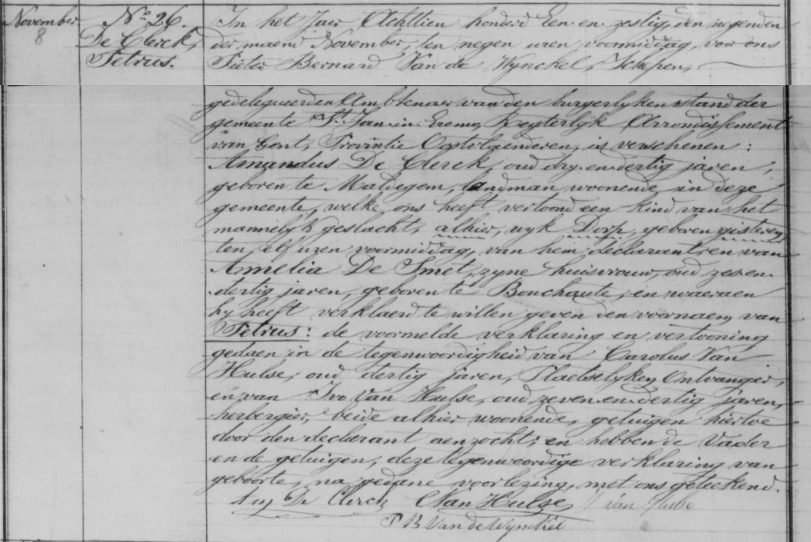 November
8
N.º 26.
De Clerck,
Petrus.
In het Jaer Achttien honderd Een en zestig, den negenden
der maend November, ten negen uren voormiddag, voor ons
Pieter Bernard Van de Wynckel, Schepen,
gedelegueerden Ambtenaer van den burgerlyken stand der
gemeente St. Jan in Eremo, Regterlyk Arrondissement
van Gent, Provintie Oostvlaenderen, is verschenen:
Amandus De Clerck, oud dry en dertig jaren,
geboren te Maldegem, landman woonende in deze
gemeente, welke ons heeft vertoond een kind van het
mannelyk geslacht, alhier, wyk Dorp, geboren gisteren
ten elf uren voormiddag, van hem declarant, en van
Amelia De Smet, zyne huisvrouw, oud zes en
dertig jaren, geboren te Bouchaute, en waeraen
hy heeft verklaerd te willen geven den voornaem van
Petrus: de voormelde verklaring en vertooning
gedaen in de tegenwoordigheid van Carolus Van
Hulse, oud dertig jaren, Plaetselyken Ontvanger,
en van Ivo Van Hulse, oud zeven en dertig jaren,
herbergier, beide alhier woonende, getuigen hiertoe
door den declarant aenzocht; en hebben de Vader
en de getuigen, deze tegenwoordige verklaring van
geboorte, na gedane voorlezing, met ons geteekend.
Am De Clerck C Van Hulse I van Hulse
P B Van de Wynckel